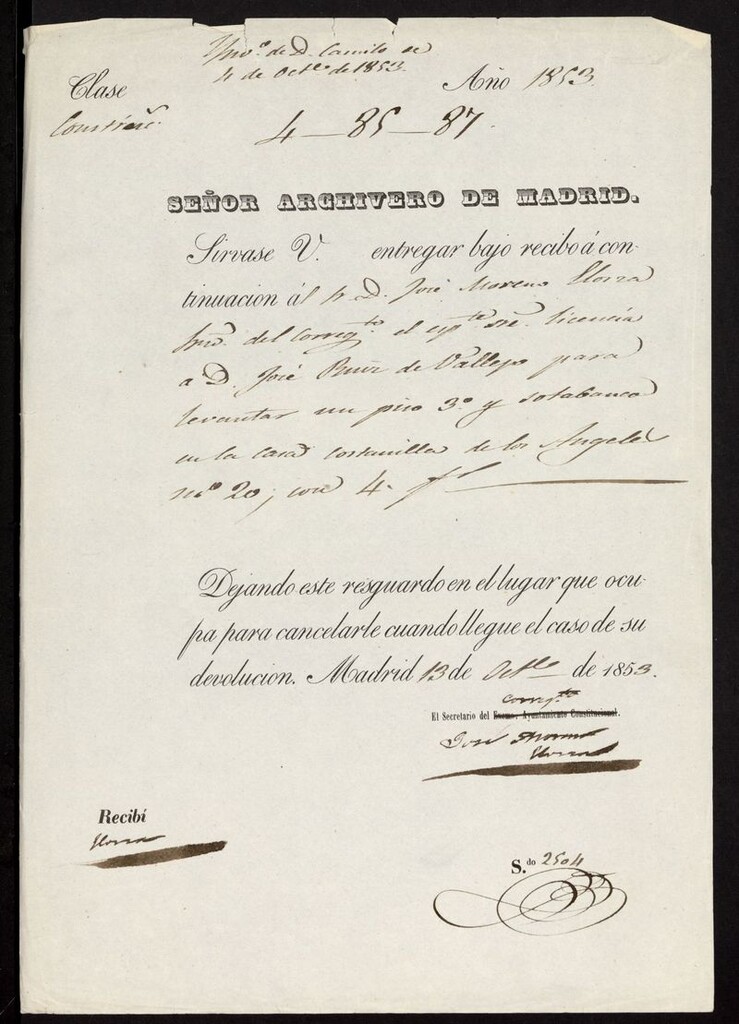 de D. Camilo
4 de Oct.e de 1853.
Clase Año 1853.
Construc.
4 – 85 – 87.
SEÑOR ARCHIVERO DE MADRID.
Sírvase V. entregar bajo recibo á con-
tinuacion ál Sr D. José Moreno Elorza
Srio. del Correg.to el esp.te sre. licencia
a D. José Ruiz de Vallejo para
levantar un piso 3.o y sotabanco
en la casa costanilla de los Angeles
n.o 20, con 4 fs
Dejando este resguardo en el lugar que ocu-
pa para cancelarle cuando llegue el caso de su
devolucion. Madrid 13 de Oct.e de 1853.
Correg.to
El Secretario del Excmo. Ayuntamiento Constitucional.
José Moreno
Elorza
Recibí
Elorza
S.do 2504